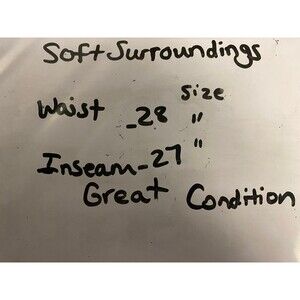 Soft Surroundings
Size
Waist -28 "
Inseam-27 "
Great Condition